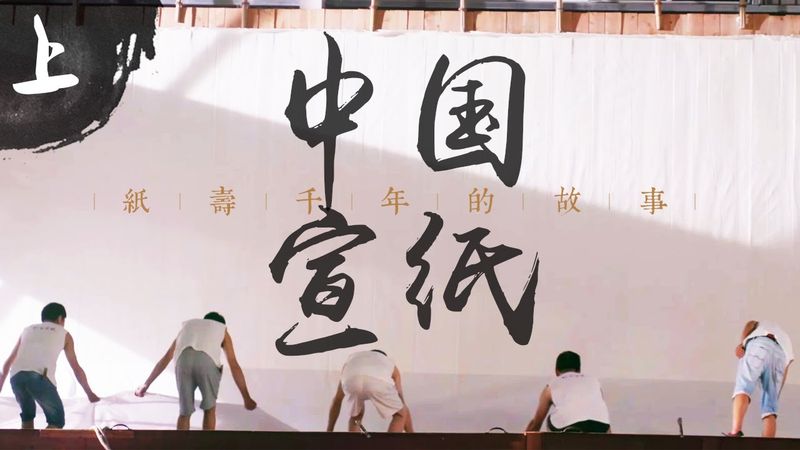 上
中国
紙壽千年的故事
宣纸